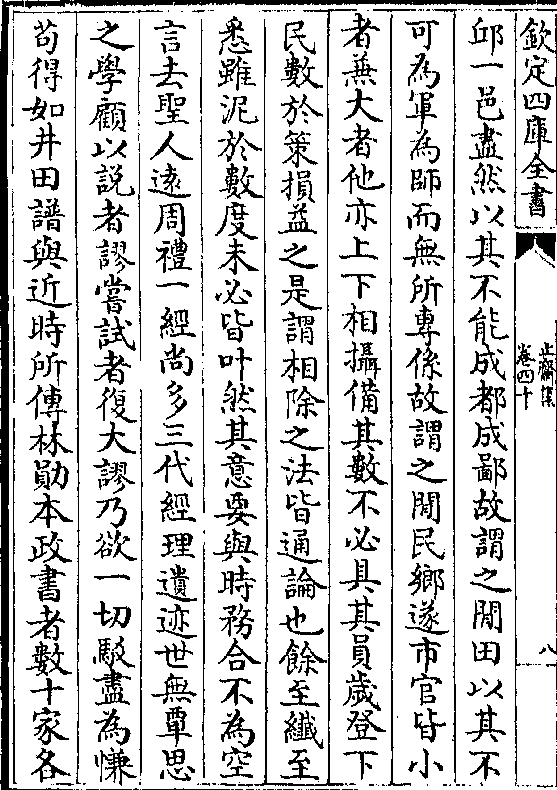 欽定四庫全書
止齋集
卷四十
八
邱一邑盡然以其不能成都成鄙故謂之閒田以其不
可為軍為師而無所專係故謂之閒民鄉遂市官皆小
者兼大者他亦上下相攝備其數不必具其員歲登下
民數於策損益之是謂相除之法皆通論也餘至纖至
悉雖泥於數度未必皆叶然其意要與時務合不為空
言去聖人遠周禮一經尚多三代經理遺迹世無覃思
之學顧以説者謬嘗試者復大謬乃欲一切駁盡為慊
苟得如井田譜與近時所傳林勛本政書者數十家各